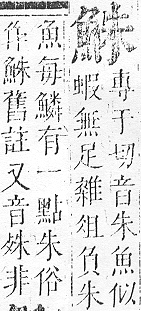 鮢專于切音朱魚似
蝦無足雜俎負朱
魚每鱗有一點朱俗
作鮢舊註又音姝非